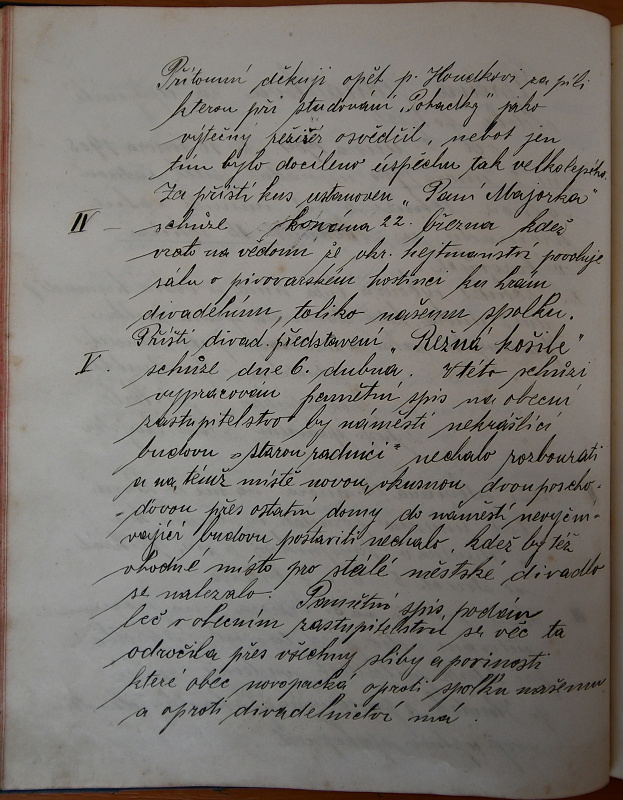 Přítomní děkují opět p. Houdkovi za píli
kterou při studování „Pobačky" jako
výtečný režisér osvědčil, neboť jen
tím bylo docíleno úspěchu tak velkolepého.
Za příští kus ustanoven „Paní Majorka"
IV – schůze konána 22. března kdež
vzato na vědomí že okr. hejtmanství povoluje
sálu v pivovarském hostinci ku hrám
divadelním, toliko našemu spolku.
Příští divad. představení „Režná košile"
V. schůze dne 6. dubna. V této schůzi
vypracován pamětní spis na obecní
zastupitelstvo by náměstí nekrášlící
budovu „starou radnici" nechalo rozbourati
a na témž místě novou, vkusnou dvouposcho-
-dovou přes ostatní domy do náměstí nevyční-
vající budovu postaviti nechalo, kdež by též
vhodné místo pro stálé městské divadlo
se nalezalo. Pamětní spis podán
leč v obecním zastupitelstvu se věc ta
odročila přes všechny sliby a povinosti
které obec novopacká oproti spolku našemu
a oproti divadelnictví má.